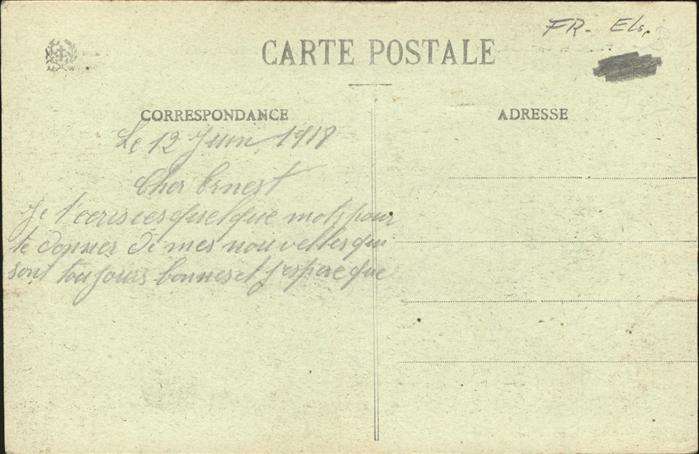 FR. Els.
CARTE POSTALE
CORRESPONDANCE
ADRESSE
Le 12 Juin 1918
Cher Ernest
Je t'ecris ces quelque mots pour
te donner de mes nouvelles qui
sont toujours bonnes et j'espere que